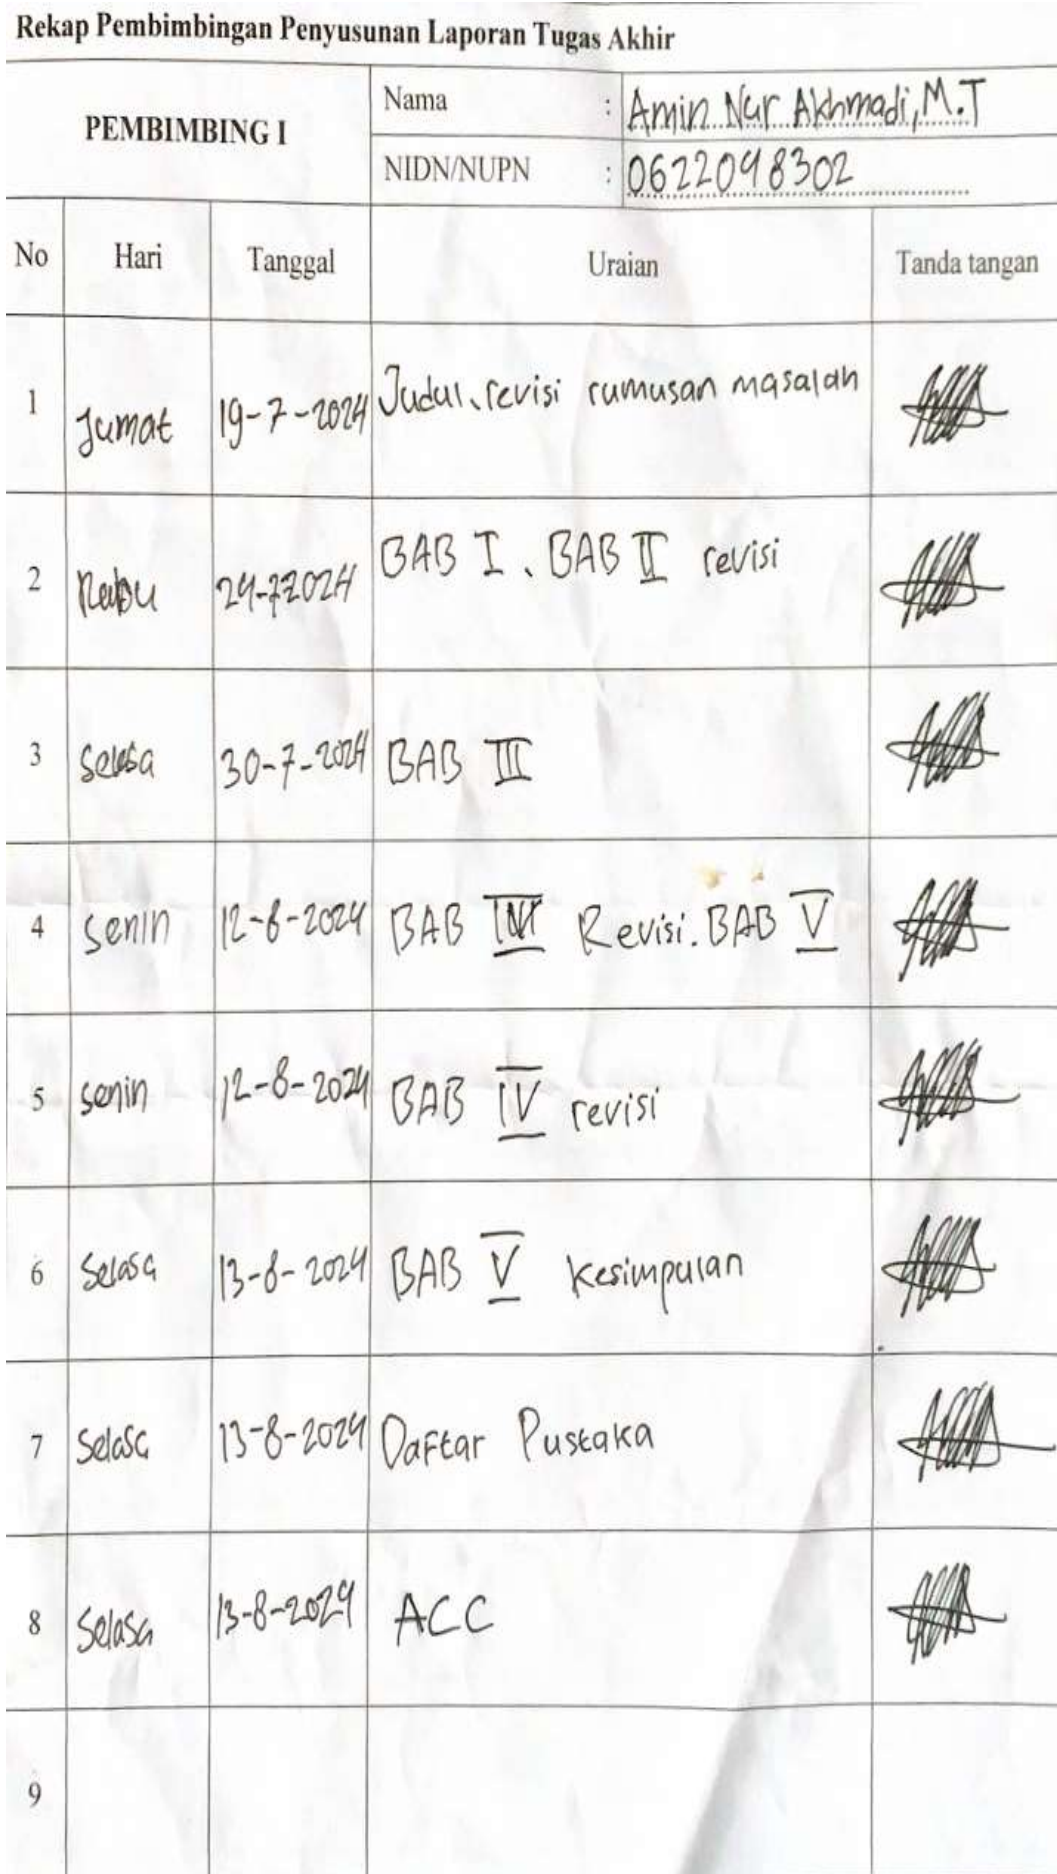 Rekap Pembimbingan Penyusunan Laporan Tugas Akhir
PEMBIMBING I
Nama : Amin Nur Akhmadi, M.T
NIDN/NUPN : 0622098302
No Hari Tanggal Uraian Tanda tangan
1 Jumat 19-7-2024 Judul, revisi rumusan masalah
2 Rabu 24-72024 BAB I, BAB II revisi
3 Selasa 30-7-2024 BAB III
4 Senin 12-8-2024 BAB Revisi. BAB V
5 Senin 12-8-2024 BAB IV revisi
6 Selasa 13-8-2024 BAB V Kesimpulan
7 Selasa 13-8-2024 Daftar Pustaka
8 Selasa 13-8-2024 ACC
9